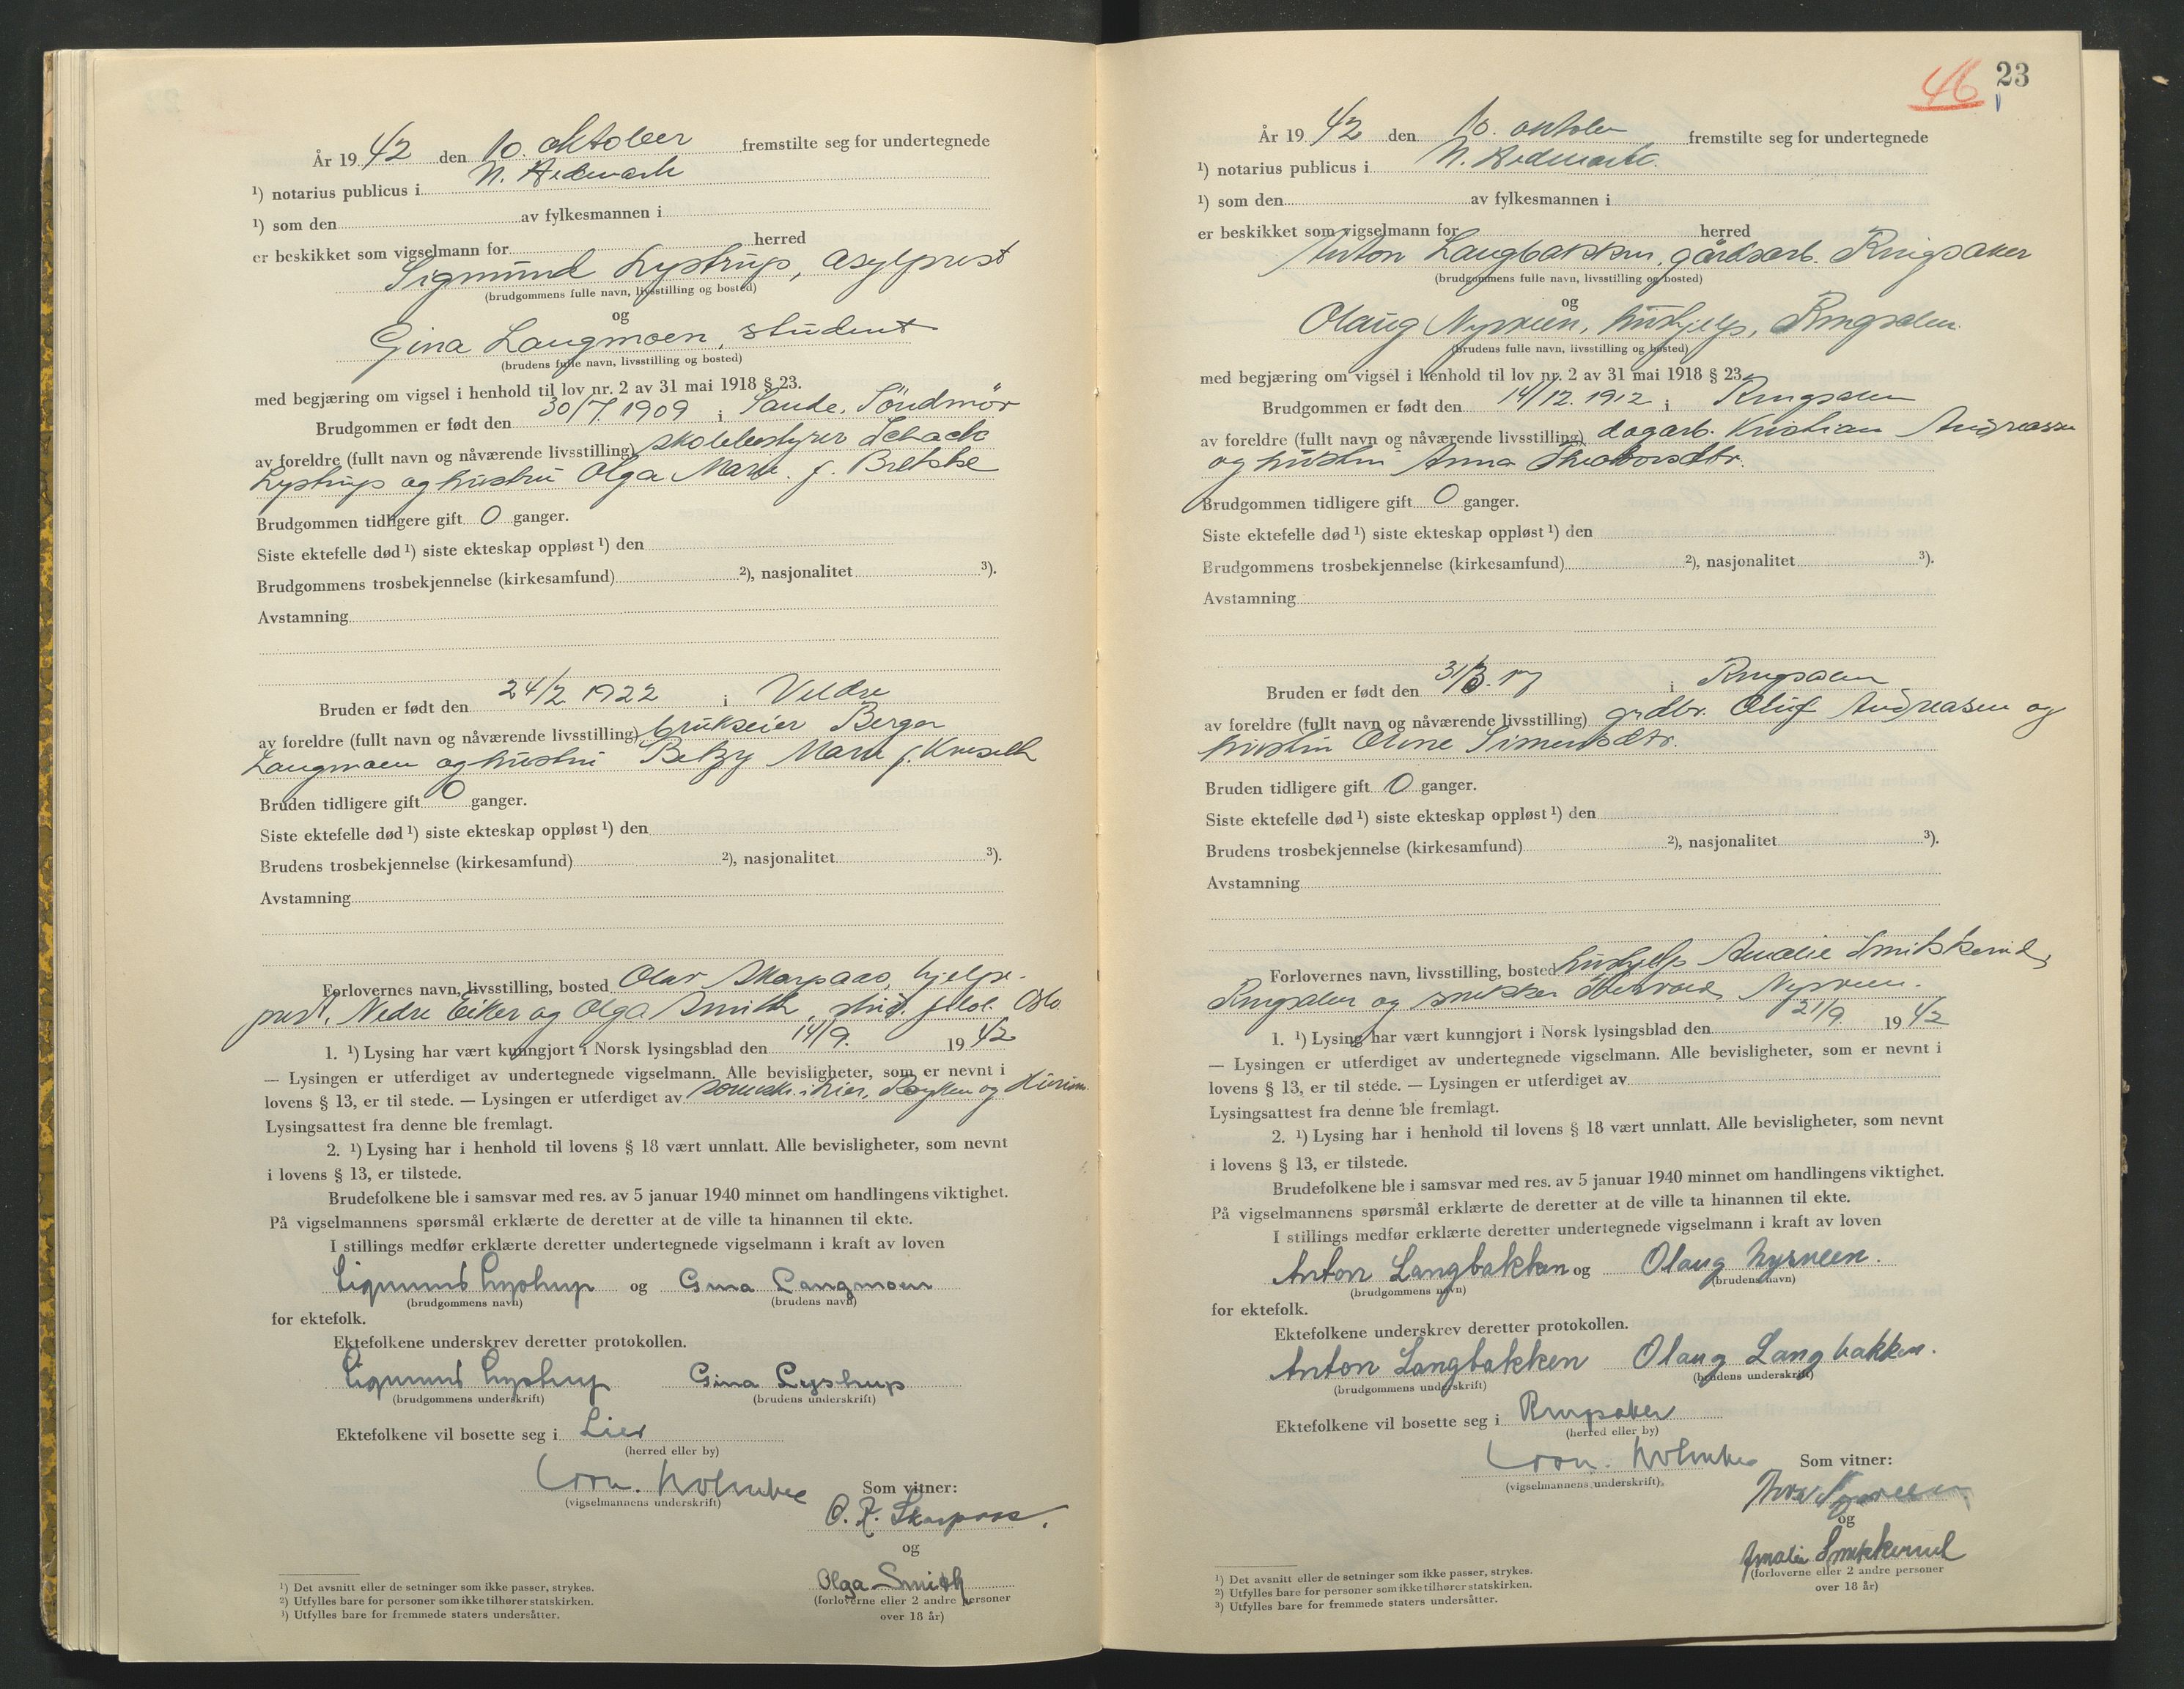 År 19 42 den 10. oktober fremstilte seg for undertegnede
¹) notarius publicus i N. Hedmark
¹) som den av fylkesmannen i
er beskikket som vigselmann for herred
Sigmund Lystrup, asylprest
(brudgommens fulle navn, livsstilling og bosted)
og
Gina Langmoen, student
(brudens fulle navn, livsstilling og bosted)
med begjæring om vigsel i henhold til lov nr. 2 av 31 mai 1918 § 23.
Brudgommen er født den 30/7 1909 i Sande, Söndmör
av foreldre (fullt navn og nåværende livsstilling) skolebestyrer Schack
Lystrup og hustru Olga Marie f. Bretske
Brudgommen tidligere gift 0 ganger.
Siste ektefelle død ¹) siste ekteskap oppløst ¹) den
Brudgommens trosbekjennelse (kirkesamfund) ²), nasjonalitet ³).
Avstamning
Bruden er født den 24/2 1922 i Veldre
av foreldre (fullt navn og nåværende livsstilling) brukseier Berger
Langmoen og hustru Betzy Marie f. Kruseth
Bruden tidligere gift 0 ganger.
Siste ektefelle død ¹) siste ekteskap oppløst ¹) den
Brudens trosbekjennelse (kirkesamfund) ²), nasjonalitet ³).
Avstamning
Forlovernes navn, livsstilling, bosted Olav Skarpaas, hjelpe-
prest, Nedre Eiker og Olga Smith, stud. philol. Oslo
1. ¹) Lysing har vært kunngjort i Norsk lysingsblad den 14/9. 19 42
— Lysingen er utferdiget av undertegnede vigselmann. Alle bevisligheter, som er nevnt i
lovens § 13, er til stede. — Lysingen er utferdiget av sorenskr. i Lier, Røyken og Hurum.
Lysingsattest fra denne ble fremlagt.
2. ¹) Lysing har i henhold til lovens § 18 vært unnlatt. Alle bevisligheter, som nevnt
i lovens § 13, er tilstede.
Brudefolkene ble i samsvar med res. av 5 januar 1940 minnet om handlingens viktighet.
På vigselmannens spørsmål erklærte de deretter at de ville ta hinannen til ekte.
I stillings medfør erklærte deretter undertegnede vigselmann i kraft av loven
Sigmund Lystrup og Gina Langmoen
(brudgommens navn) (brudens navn)
for ektefolk.
Ektefolkene underskrev deretter protokollen.
Sigmund Lystrup Gina Lystrup
(brudgommens underskrift) (brudens underskrift)
Ektefolkene vil bosette seg i Lier
(herred eller by)
Som vitner:
(vigselmannens underskrift)
O. K. Skarpaas.
og
Olga Smith
(forloverne eller 2 andre personer
over 18 år)
¹) Det avsnitt eller de setninger som ikke passer, strykes.
²) Utfylles bare for personer som ikke tilhører statskirken.
³) Utfylles bare for fremmede staters undersåtter.
46 23
År 19 42 den 10. oktober fremstilte seg for undertegnede
¹) notarius publicus i N. Hedmark.
¹) som den av fylkesmannen i
er beskikket som vigselmann for herred
Anton Langbakken, gårdsarb. Ringsaker
(brudgommens fulle navn, livsstilling og bosted)
og
Olaug Nysveen, hushjelp, Ringsaker
(brudens fulle navn, livsstilling og bosted)
med begjæring om vigsel i henhold til lov nr. 2 av 31 mai 1918 § 23.
Brudgommen er født den 14/12. 1912 i Ringsaker
av foreldre (fullt navn og nåværende livsstilling) dagarb. Kristian Andreassen
og hustru Anna
Brudgommen tidligere gift 0 ganger.
Siste ektefelle død ¹) siste ekteskap oppløst ¹) den
Brudgommens trosbekjennelse (kirkesamfund) ²), nasjonalitet ³).
Avstamning
Bruden er født den 31/3. 17 i Ringsaker
av foreldre (fullt navn og nåværende livsstilling) grdbr. Oluf Andreasen og
hustru Oline Simensdtr.
Bruden tidligere gift 0 ganger.
Siste ektefelle død ¹) siste ekteskap oppløst ¹) den
Brudens trosbekjennelse (kirkesamfund) ²), nasjonalitet ³).
Avstamning
Forlovernes navn, livsstilling, bosted hushjelp Amalie Smikkerud,
Ringsaker og snekker Nysveen.
1. ¹) Lysing har vært kunngjort i Norsk lysingsblad den 21/9. 19 42
— Lysingen er utferdiget av undertegnede vigselmann. Alle bevisligheter, som er nevnt i
lovens § 13, er til stede. — Lysingen er utferdiget av
Lysingsattest fra denne ble fremlagt.
2. ¹) Lysing har i henhold til lovens § 18 vært unnlatt. Alle bevisligheter, som nevnt
i lovens § 13, er tilstede.
Brudefolkene ble i samsvar med res. av 5 januar 1940 minnet om handlingens viktighet.
På vigselmannens spørsmål erklærte de deretter at de ville ta hinannen til ekte.
I stillings medfør erklærte deretter undertegnede vigselmann i kraft av loven
Anton Langbakken og Olaug Nysveen.
(brudgommens navn) (brudens navn)
for ektefolk.
Ektefolkene underskrev deretter protokollen.
Anton Langbakken Olaug Langbakken.
(brudgommens underskrift) (brudens underskrift)
Ektefolkene vil bosette seg i Ringsaker
(herred eller by)
Som vitner:
(vigselmannens underskrift)
Nysveen
og
Amalie Smikkerud
(forloverne eller 2 andre personer
over 18 år)
¹) Det avsnitt eller de setninger som ikke passer, strykes.
²) Utfylles bare for personer som ikke tilhører statskirken.
³) Utfylles bare for fremmede staters undersåtter.